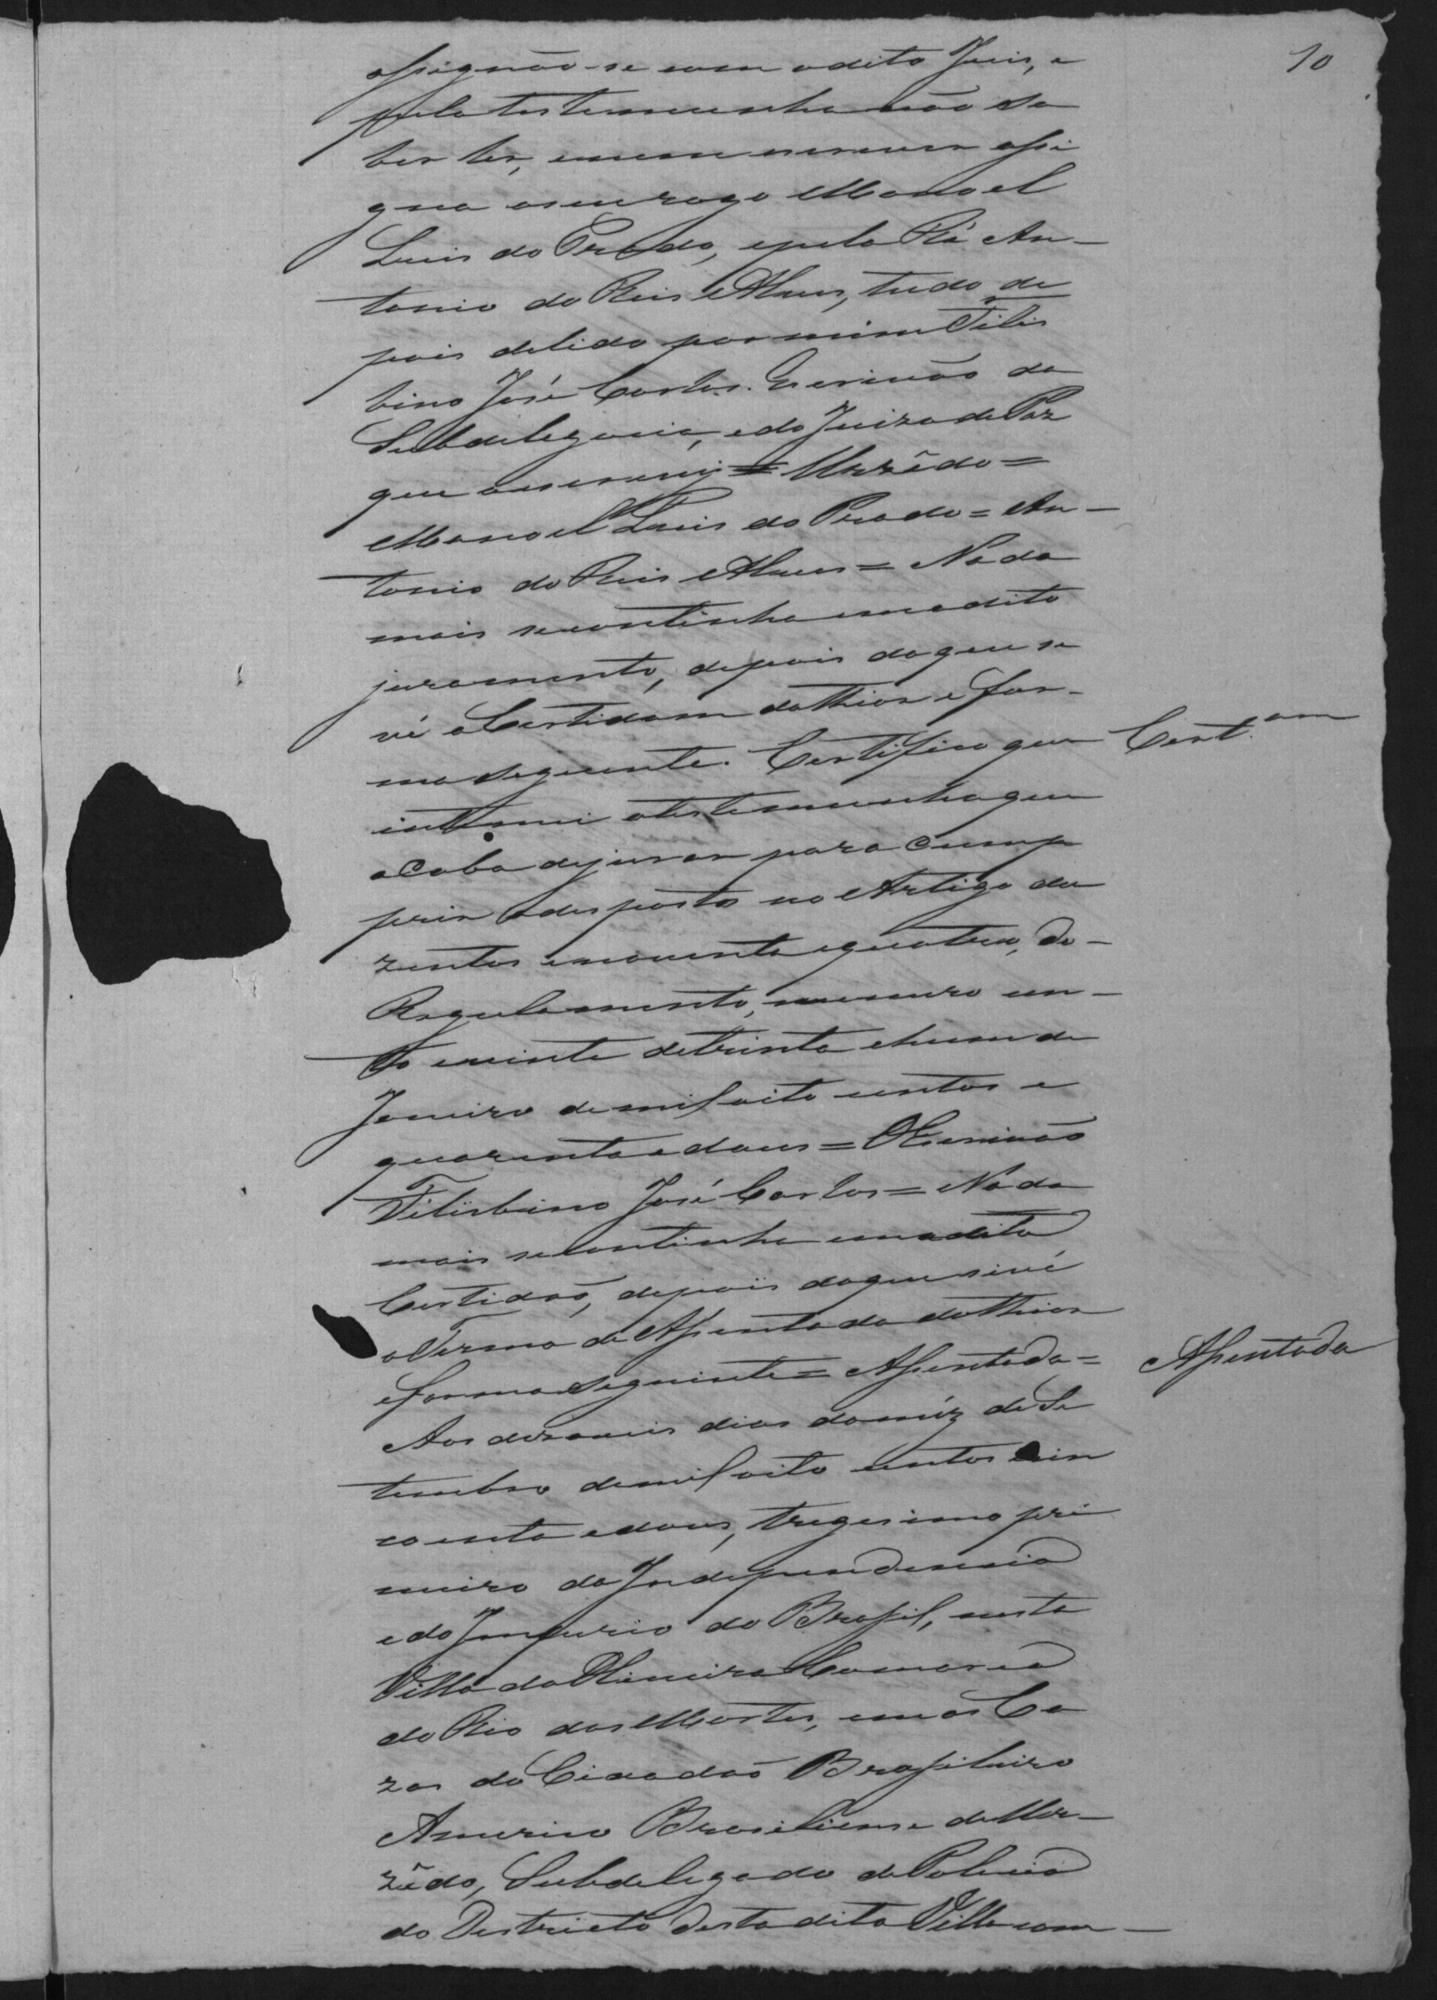 10
assignão-se com o dito Juis, e
pela testemunha não sa
ber ler, enem escrever assi
gna aseu rogo Manoel
Luis do Prado, epela Ré An-
tonio do Reis Alves, tudo de
pois delido por mim Felis
bino José Carlos. Escrivão da
Subdelegacia, edo Juizo de Paz
que oescrevy = Urzêdo =
Manoel Luis do Prado = An-
tonio do Reis Alves = Nada
mais secontinha emodito
juramento, depois doque se
vé a Certidam dotheor e for-
maseguinte. Certifico que
Cert.am
intimei atestemunhaque
acaba dejurar para cump
prir odesposto no Artigo du
zentos enoventa equatro, do-
Regulamento, numero cen-
to evinte detrinta ehum de
Janeiro demil oito centos e
quarenta edous = OEscrivão
Felisbino José Carlos = Nada
mais secontinha emadita
Certidão, depois doque sevé
oTermo de Assentada dotheor
eformaseguinte = Assentada =
Assentada
Aos dezaseis dias domêz de Se
tembro demil oito centos ecin
coenta edous, tregesimo pri
meiro da Independencia
edo Imperio do Brasil, nesta
Villa da Oliveira Comarca
do Rio das Mortes, em as Ca
zas do Cidadão Brasileiro
Americo Brasiliense de Ur-
zêdo, Subdelegado de Policia
do Destricto desta dita Villa com-